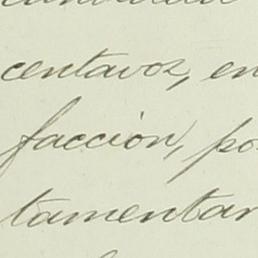 centavos, en
facción, po
tamentar